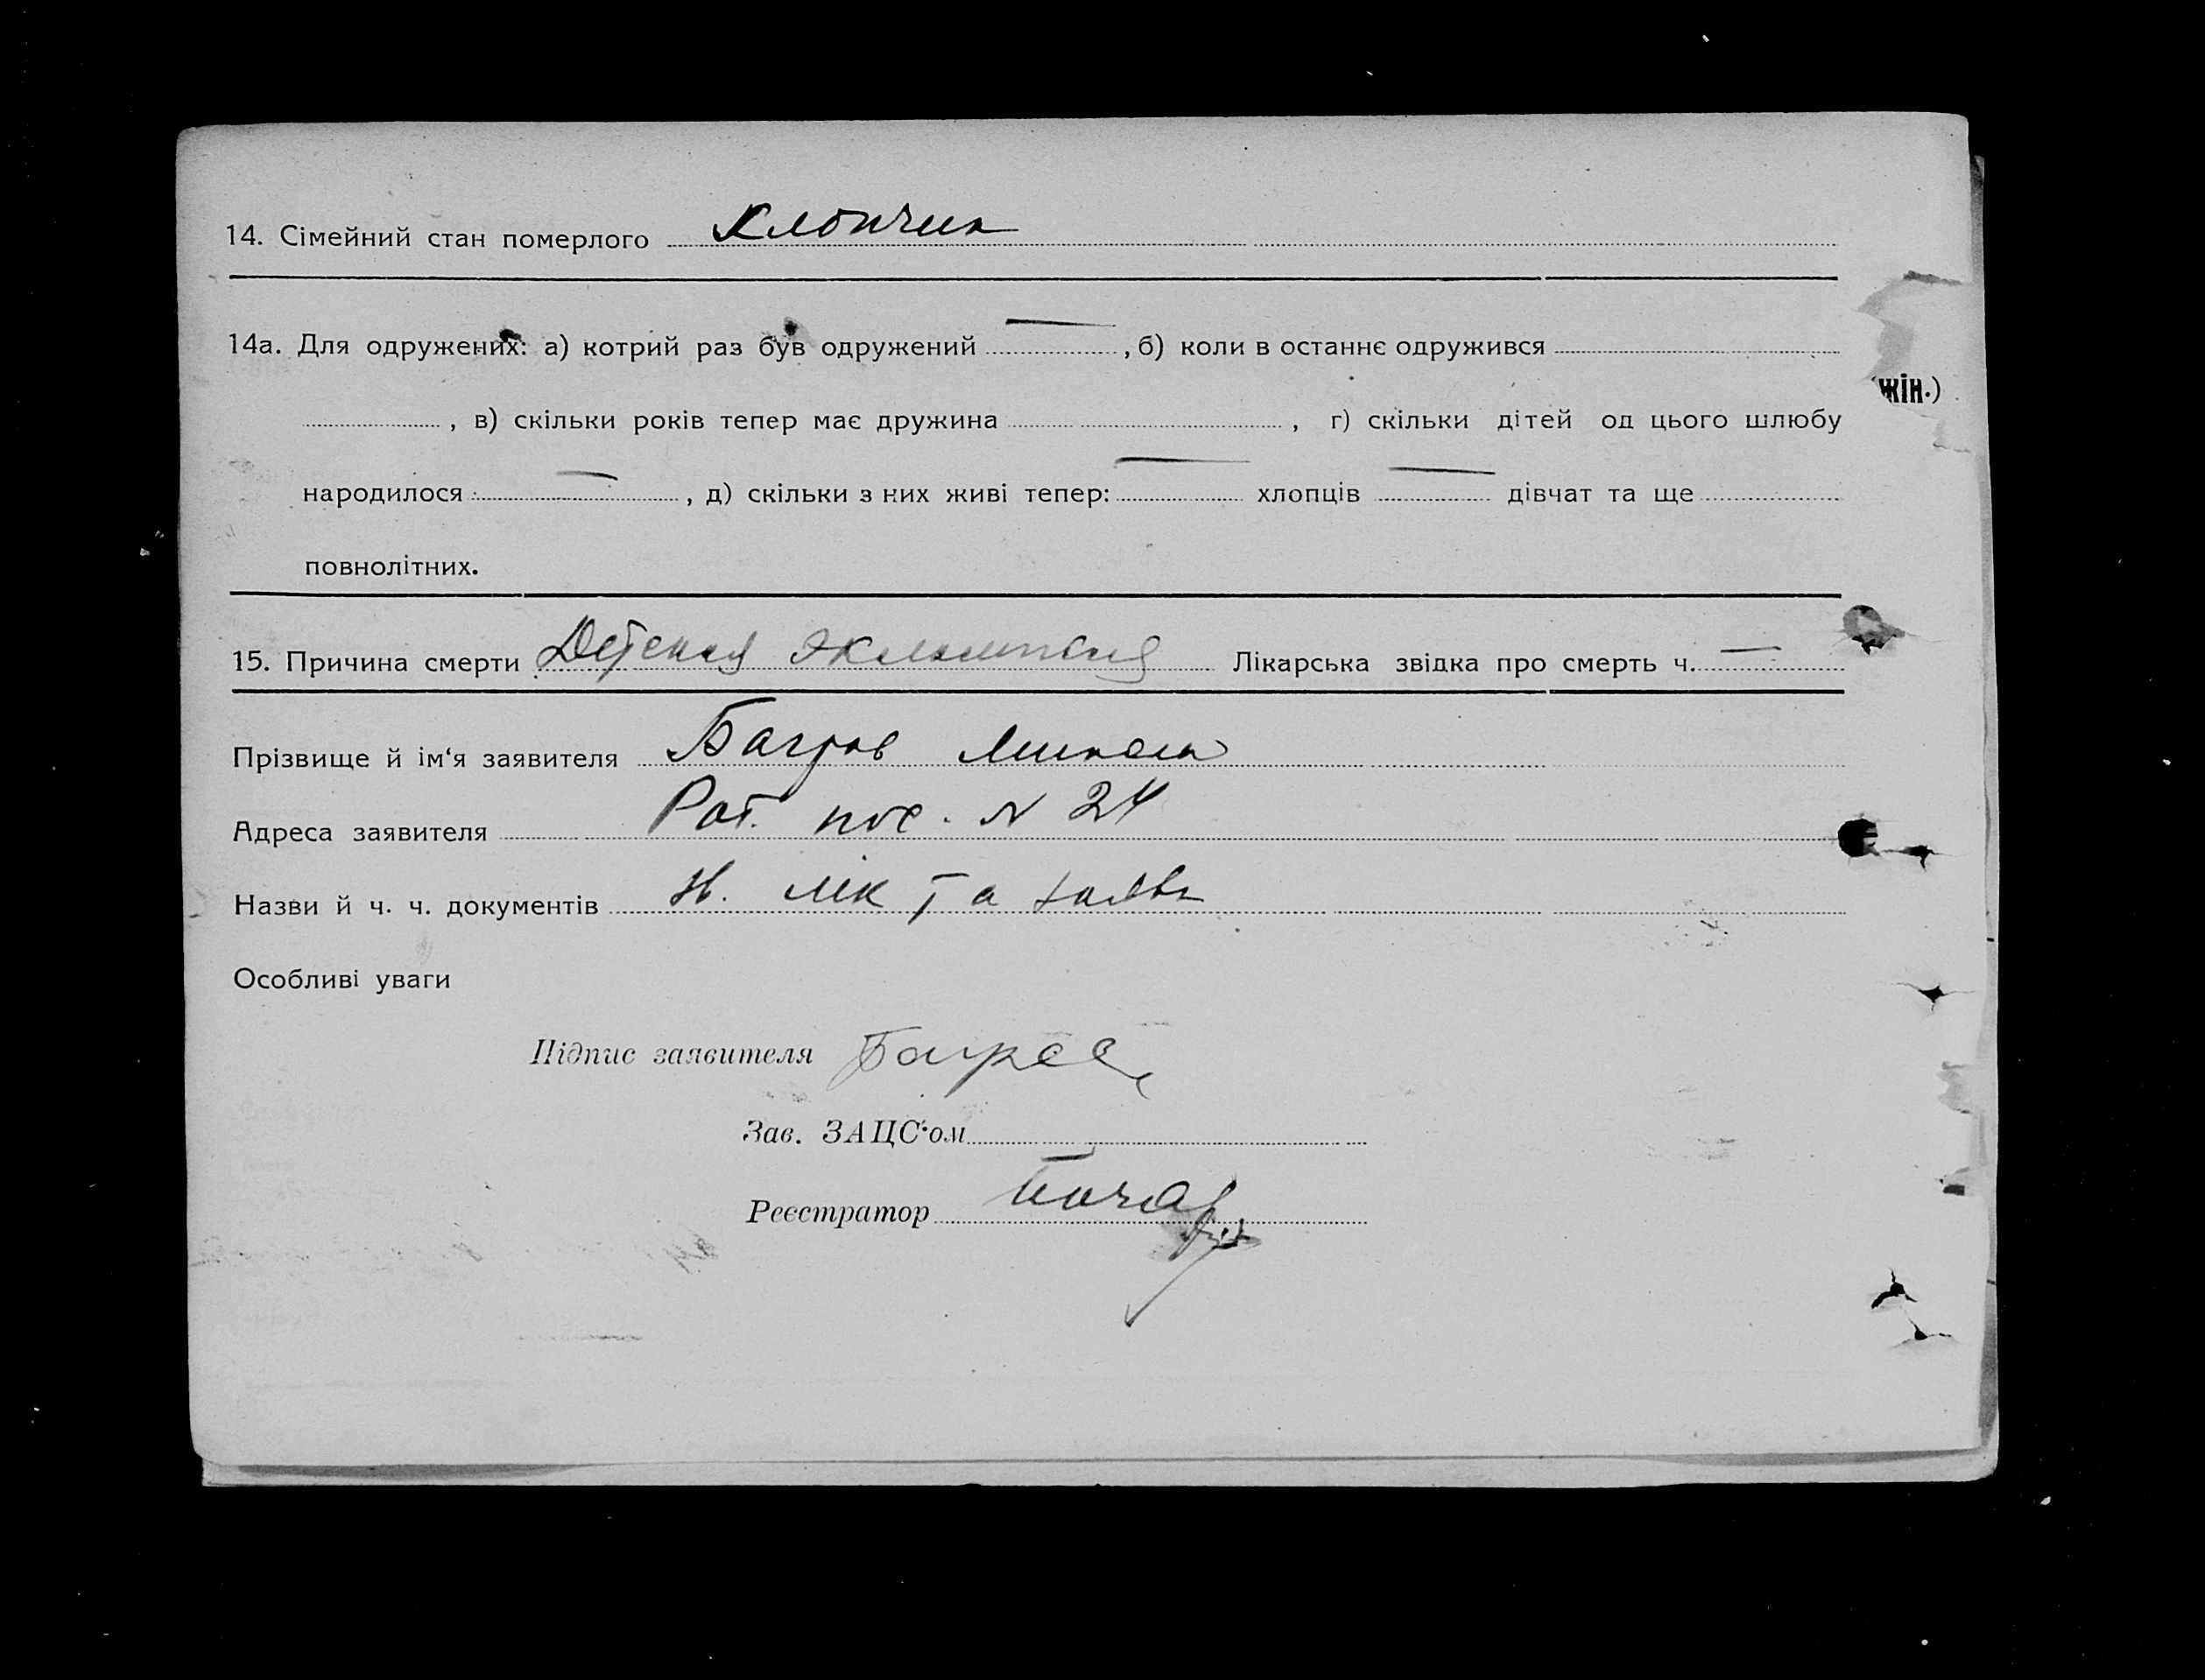 14. Сімейний стан померлого Хлопчик
14а. Для одружених: а) котрий раз був одружений — , б) коли в останнє одружився
(жін.)
, в) скільки років тепер має дружина , г) скільки дітей од цього шлюбу
народилося — , д) скільки з них живі тепер: — хлопців — дівчат та ще
повнолітних.
15. Причина смерти Детская эклампсия Лікарська звідка про смерть ч. —
Прізвище й ім'я заявителя Багров Микола
Адреса заявителя пос. N 24
Назви й ч. ч. документів лік та заява
Особливі уваги
Підпис заявителя Багров
Зав. ЗАЦС'ом
Реєстратор